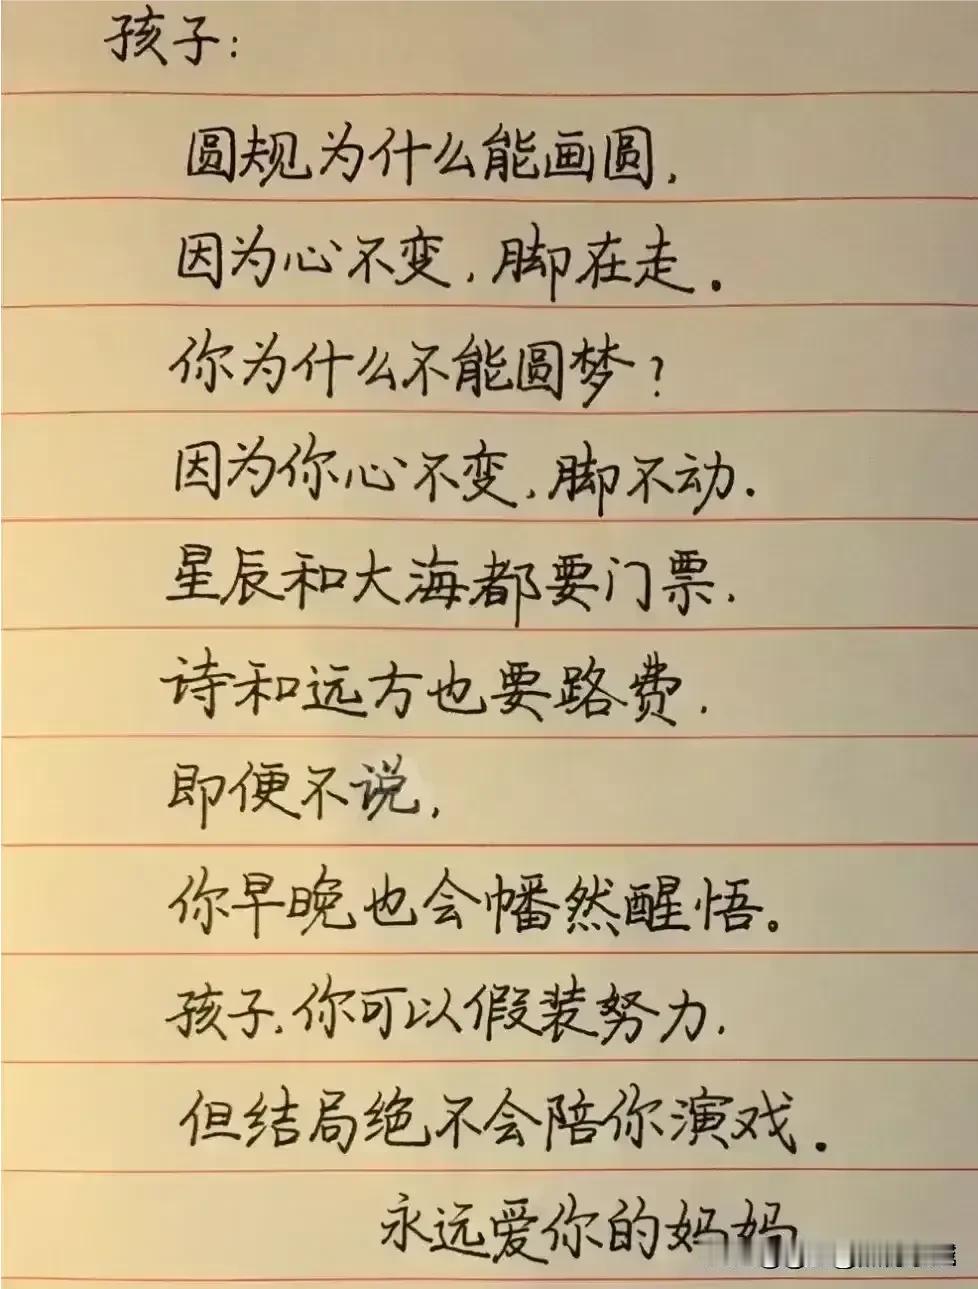 孩子:
圆规为什么能画圆,
因为心不变,脚在走.
你为什么不能圆梦?
因为你心不变,脚不动.
星辰和大海都要门票,
诗和远方也要路费.
即便不说,
你早晚也会幡然醒悟。
孩子,你可以假装努力,
但结局绝不会陪你演戏.
永远爱你的妈妈